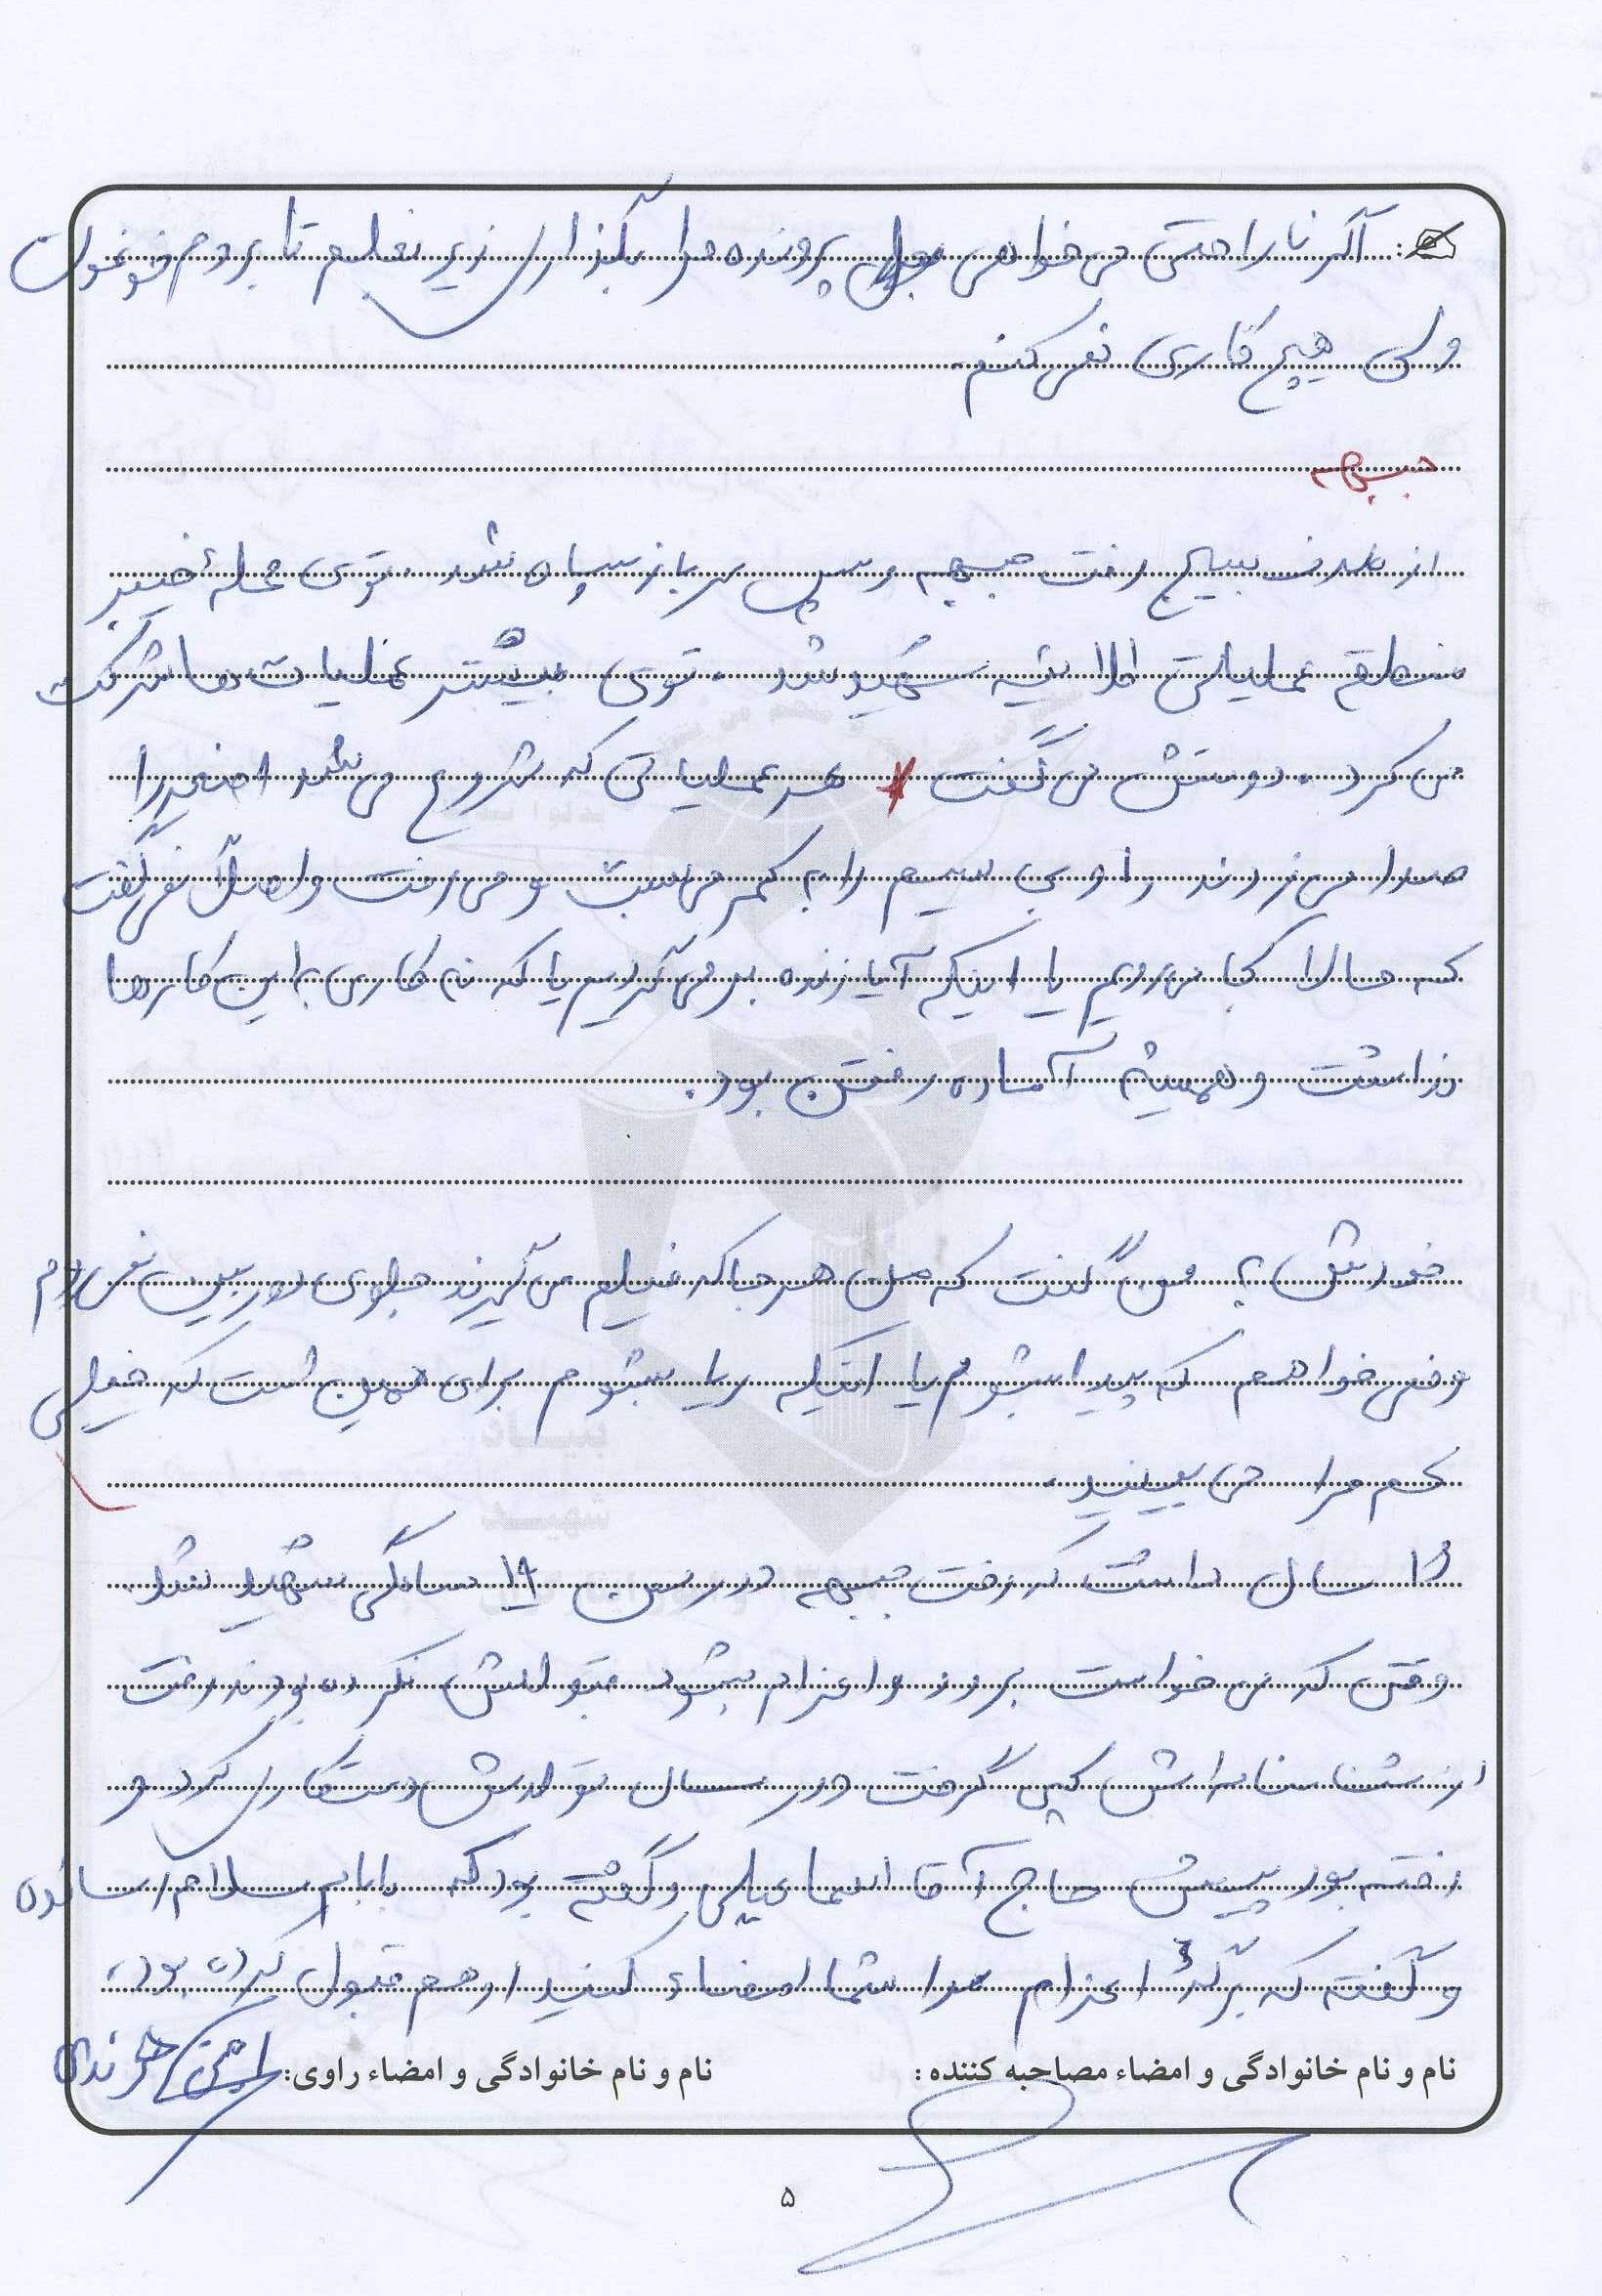 اگر ناراحتی می خواهی پرونده مرا بگذاری زیر بغلم تا بروم
ولی هیچ کاری نمی کنم.
جبهه
از طرف بسیج رفت جبهه و سپس سرباز سپاه شد. توی حمله خیبر
منطقه عملیاتی شهید شد. توی بیشتر عملیات ها شرکت
می کرد. دوستش می گفت هر عملیاتی که شروع می شد اصغر را
صدا می زدند و او بی سیم را به کمر می بست و می رفت و اصلاً نمی گفت
که حالا کجا می رویم یا اینکه آیا زنده بر می گردیم یا که نه کاری به این کارها
نداشت و همیشه آماده رفتن بود.
خودش به من گفت که من هر جا که فیلم می گیرند جلوی دوربین نمی روم
و نمی خواهم که پیدا بشوم یا اینکه ریا بشوم برای همین است که خیلی
کم مرا می بینید.
سال داشت که رفت جبهه در سن ۱۹ سالگی شهید شد.
وقتی که می خواست برود و اعزام بشود قبولش نکرده بودند رفت
از شناسنامه اش کپی گرفت و در سال تولدش دستکاری کرد و
رفته بود پیش حاج آقا اسماعیلی و گفته بود که بابام سلام رسانده
و گفته که برگه اعزام مرا شما امضاء کنید او هم قبول کرده بود.
نام و نام خانوادگی و امضاء مصاحبه کننده : نام و نام خانوادگی و امضاء راوی:
۵